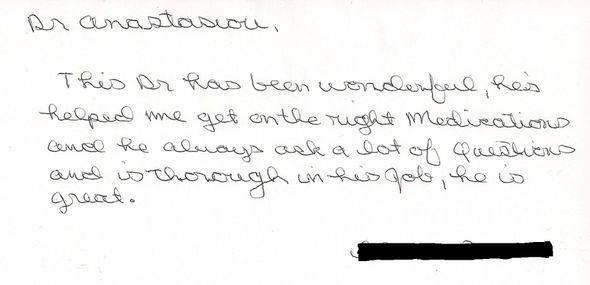 Dr Anastasiou,
This Dr has been wonderful, he's
helped me get on the right Medications
and he always ask a lot of Questions
and is thorough in his Job, he is
great.